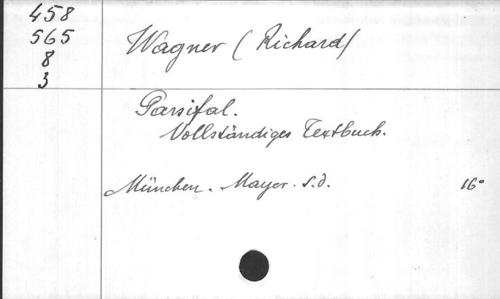 458
565
8
3
Wagner (Richard)
Parsifal.
Vollständiges Textbuch.
München. Mayer. s.d. 16°